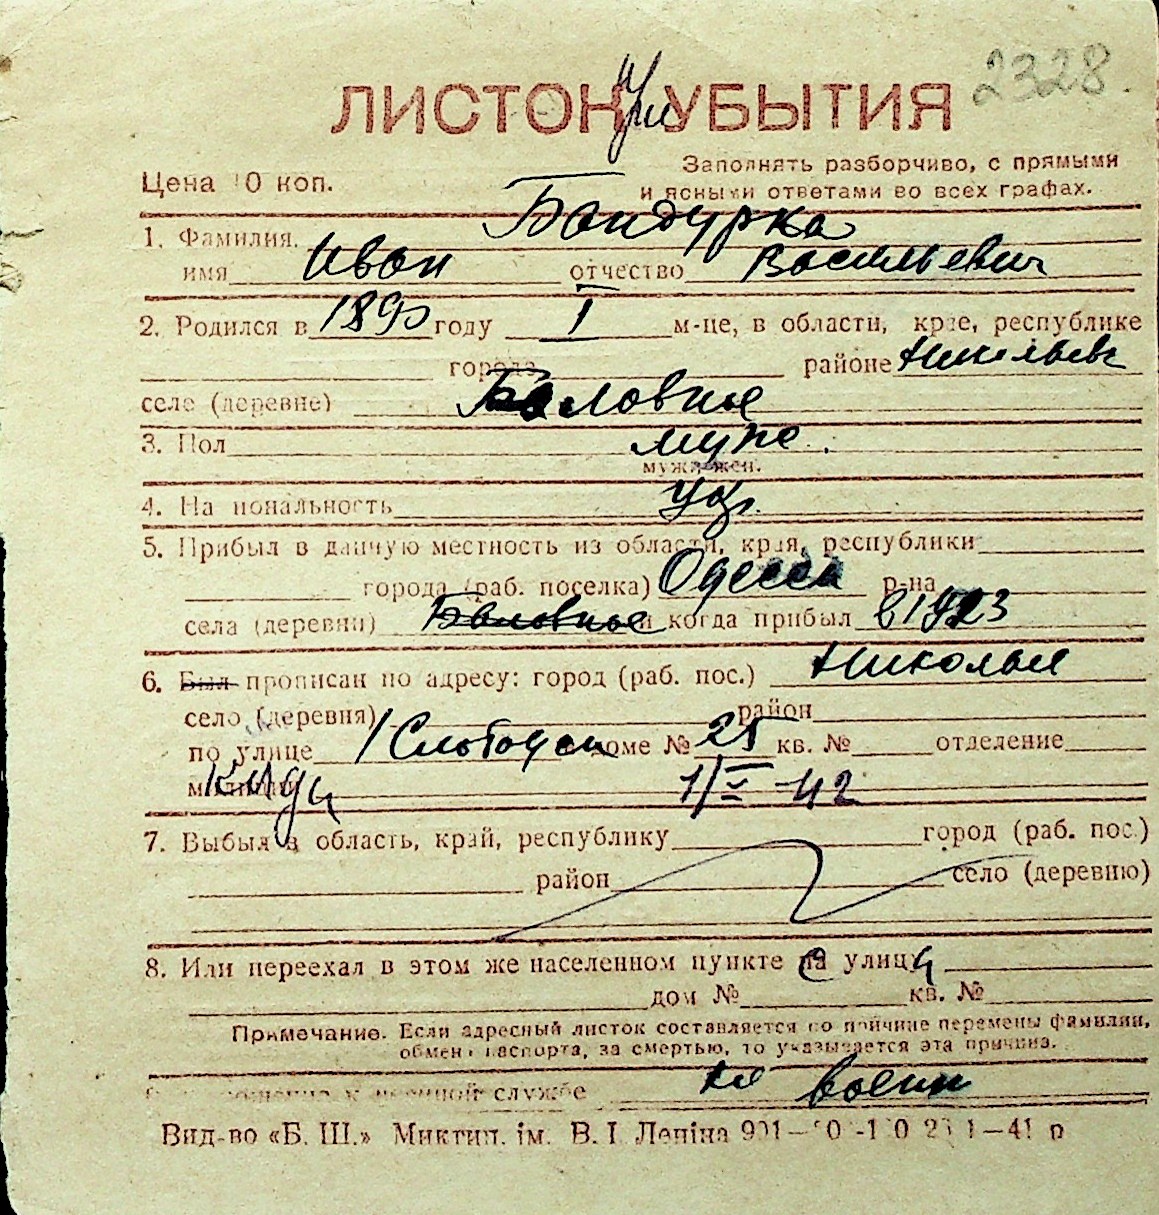 2328.
ЛИСТОК При УБЫТИЯ
Заполнять разборчиво, с прямыми
Цена 10 коп.
и ясными ответами во всех графах.
1. Фамилия Бандурка
имя Иван отчество Васильевич
2. Родился в 1890 году I м-це, в области, крае, республике
города районе Николаев
селе (деревне) Баловное
3. Пол муж.
муж., жен.
4. Национальность укр.
5. Прибыл в данную местность из области, края, республики
города (раб. поселка) Одесса р-на
села (деревни) Баловное и когда прибыл в 1923
6. Был прописан по адресу: город (раб. пос.) Николаев
село (деревня) район
по улице 1 Слободск доме № 25 кв. № отделение
милиции 1/V-42
7. Выбыл в область, край, республику город (раб. пос.)
район село (деревню)
8. Или переехал в этом же населенном пункте на улицу
дом № кв. №
Примечание. Если адресный листок составляется по причине перемены фамилии,
обмена паспорта, за смертью, то указывается эта причина.
к военной службе не воен
Вид-во «Б. Ш.» Миктип. ім. В. І. Леніна